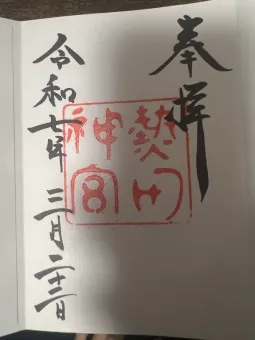 奉拝
熱田
神宮
令和七年三月二十二日